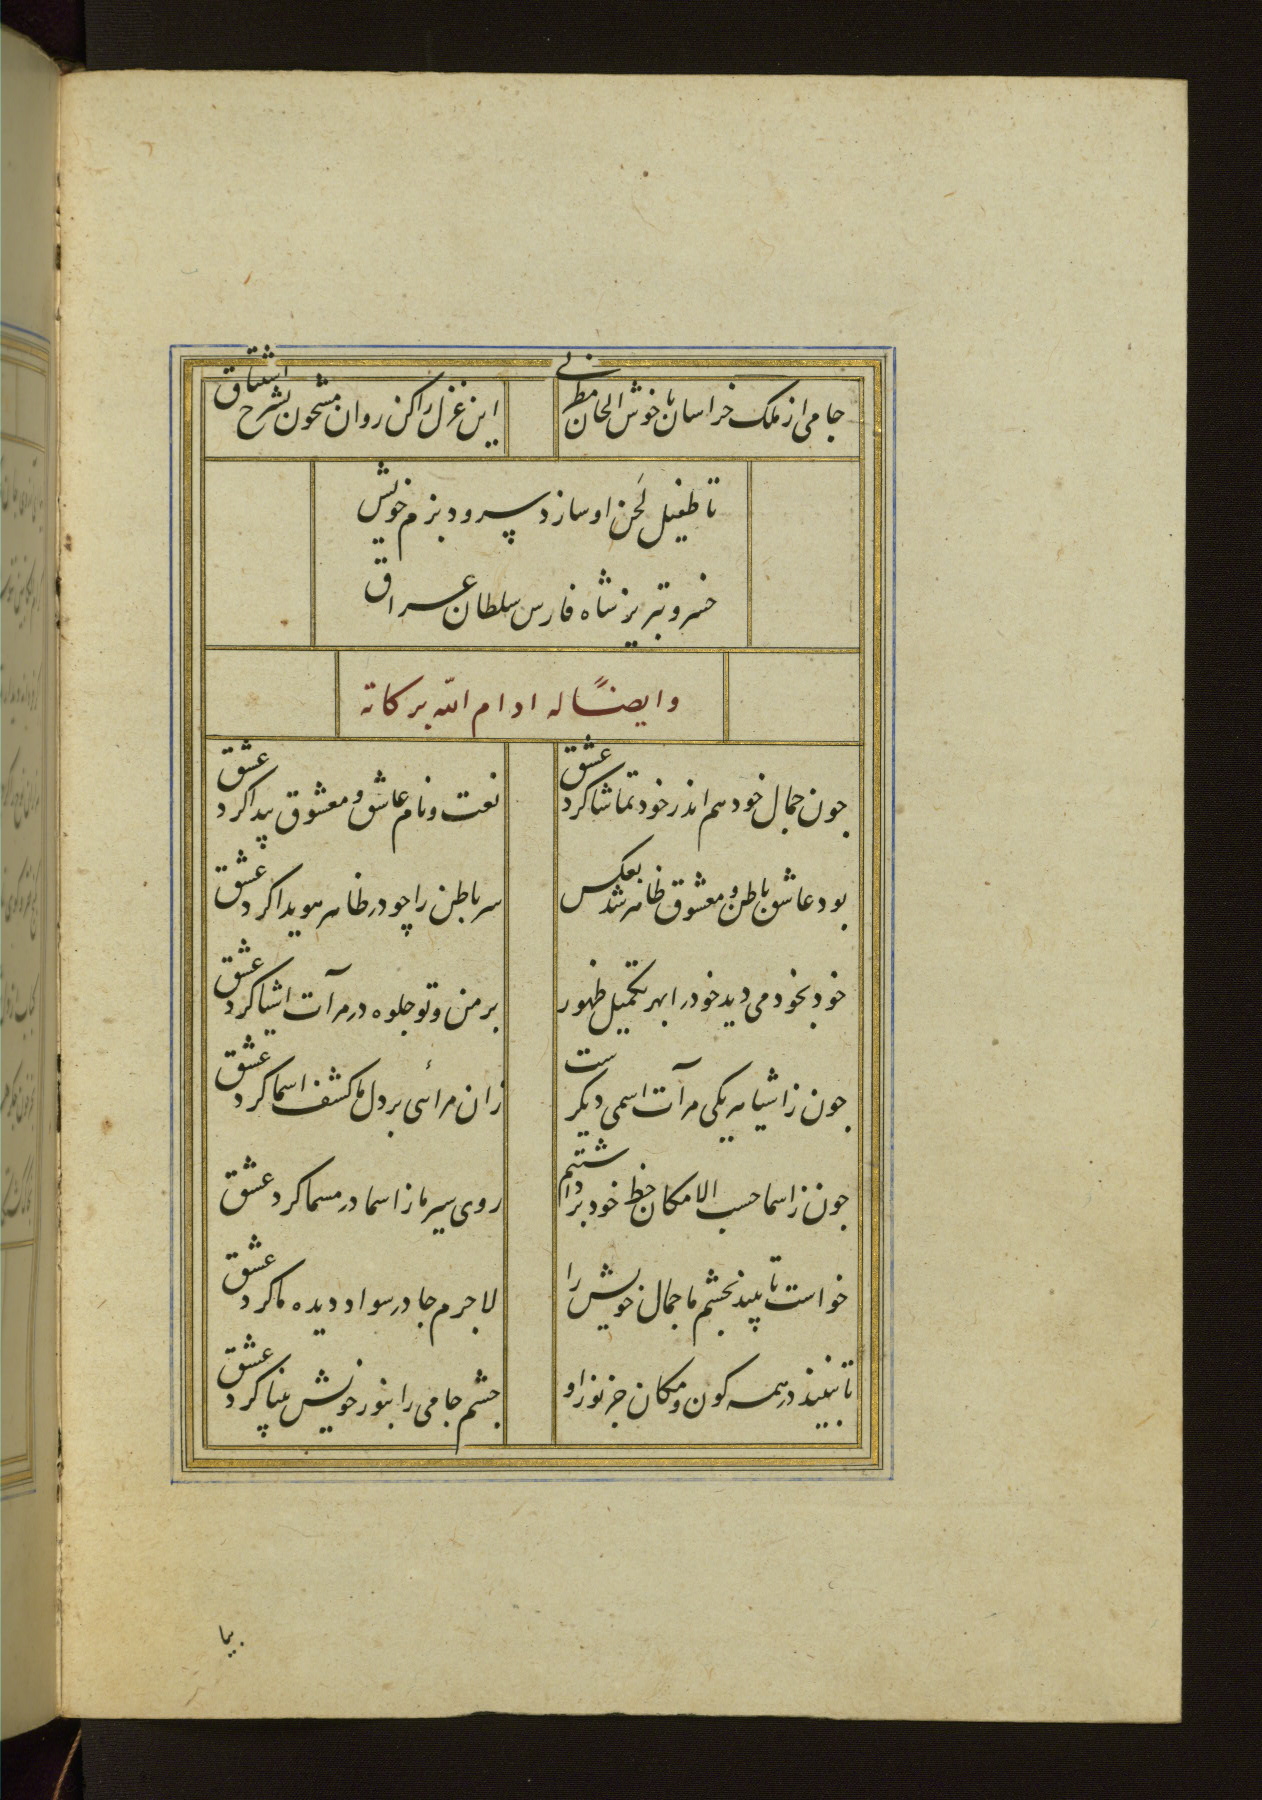 جامی از ملک خراسان با خوش الحان مطربی
این غزل را کن روان مشحون بشرح اشتیاق
تا طفیل لحن او سازد سرود بزم خویش
خسرو تبریز شاه فارس سلطان عراق
وایضًا له ادام الله برکاته
چون جمال خود هم اندر خود تماشا کرد عشق
نعت و نام عاشق و معشوق پیدا کرد عشق
بود عاشق باطن و معشوق ظاهر شد بعکس
سر باطن را چو در ظاهر هویدا کرد عشق
خود بخود می دید خود را بهر تکمیل ظهور
بر من و تو جلوه در مرآت اشیا کرد عشق
جون ز اشیا هر یکی مرآت اسمی دیکرست
زان مرائی بر دل ما کشف اسما کرد عشق
جون ز اسما حسب الامکان حظ خود برداشتیم
روی سیر ما ز اسما در مسما کرد عشق
خواست تا بیند بچشم ما جمال خویش را
لاجرم جا در سواد دیده ما کرد عشق
تا نبیند در همه کون و مکان جز نور او
جشم جامی را بنور خویش بینا کرد عشق
بیا